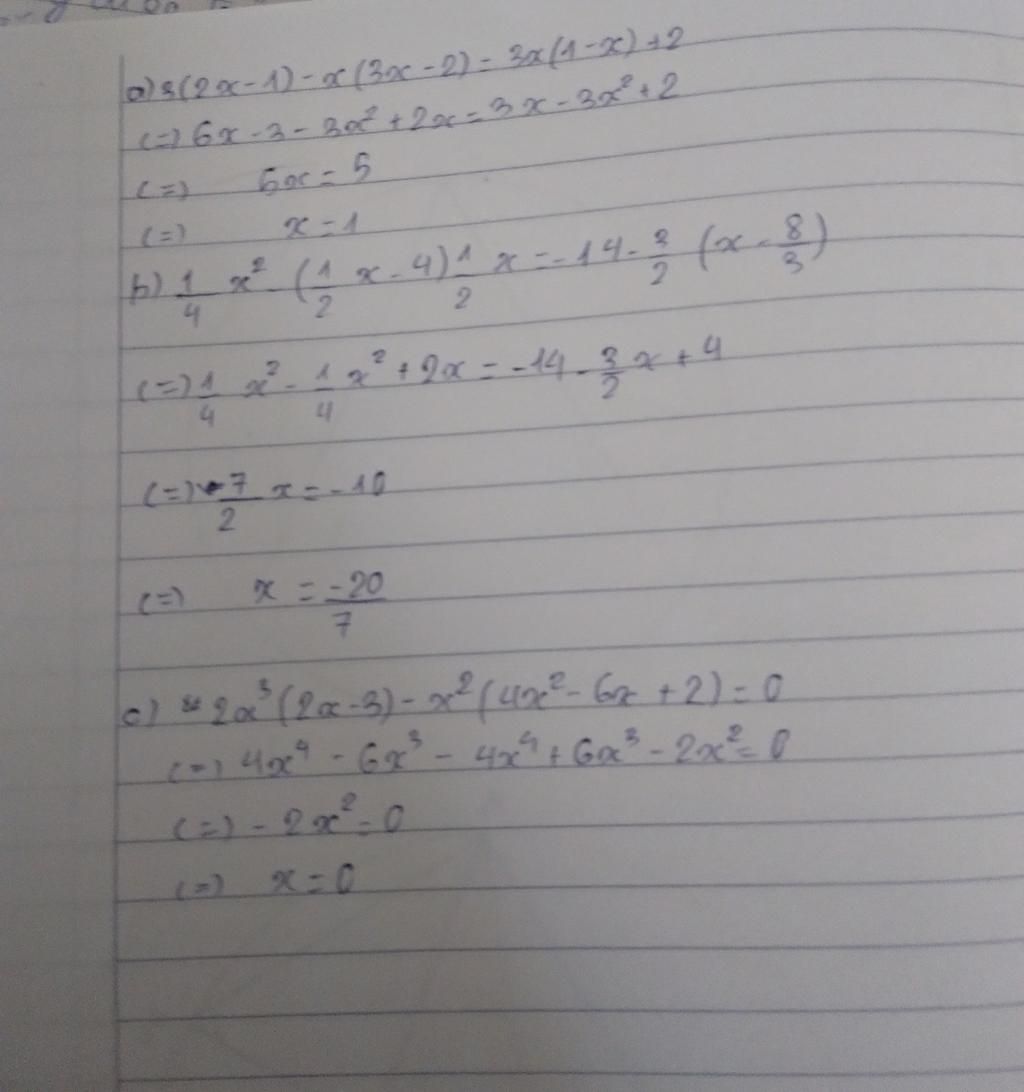 a) 3(2x-1) - x(3x-2) = 3x(1-x)+2
(=) 6x - 3 - 3x² + 2x = 3x - 3x² + 2
(=) 5x = 5
(=) x = 1
b) 1/4 x² - (1/2 x - 4) 1/2 x = -14 - 3/2 (x - 8/3)
(=) 1/4 x² - 1/4 x² + 2x = -14 - 3/2 x + 4
(=) 7/2 x = -10
(=) x = -20/7
c) 2x³(2x-3) - x²(4x² - 6x + 2) = 0
(=) 4x⁴ - 6x³ - 4x⁴ + 6x³ - 2x² = 0
(=) - 2x² = 0
(=) x = 0